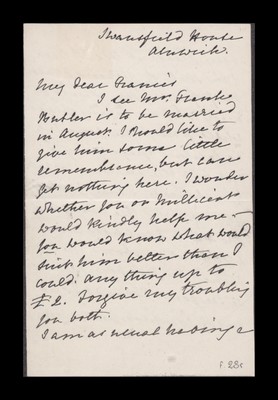 Swansfield House
Alnwick.
My dear Francis
I see Mr. Frank
Butler is to be married
in August. I should like to
give him some little
remembrance, but can
get nothing here. I wonder
whether you or Millicent
would kindly help me –
you would know what would
suit him better than I
could. any thing up to
£2. Forgive my troubling
you both.
I am as usual having a